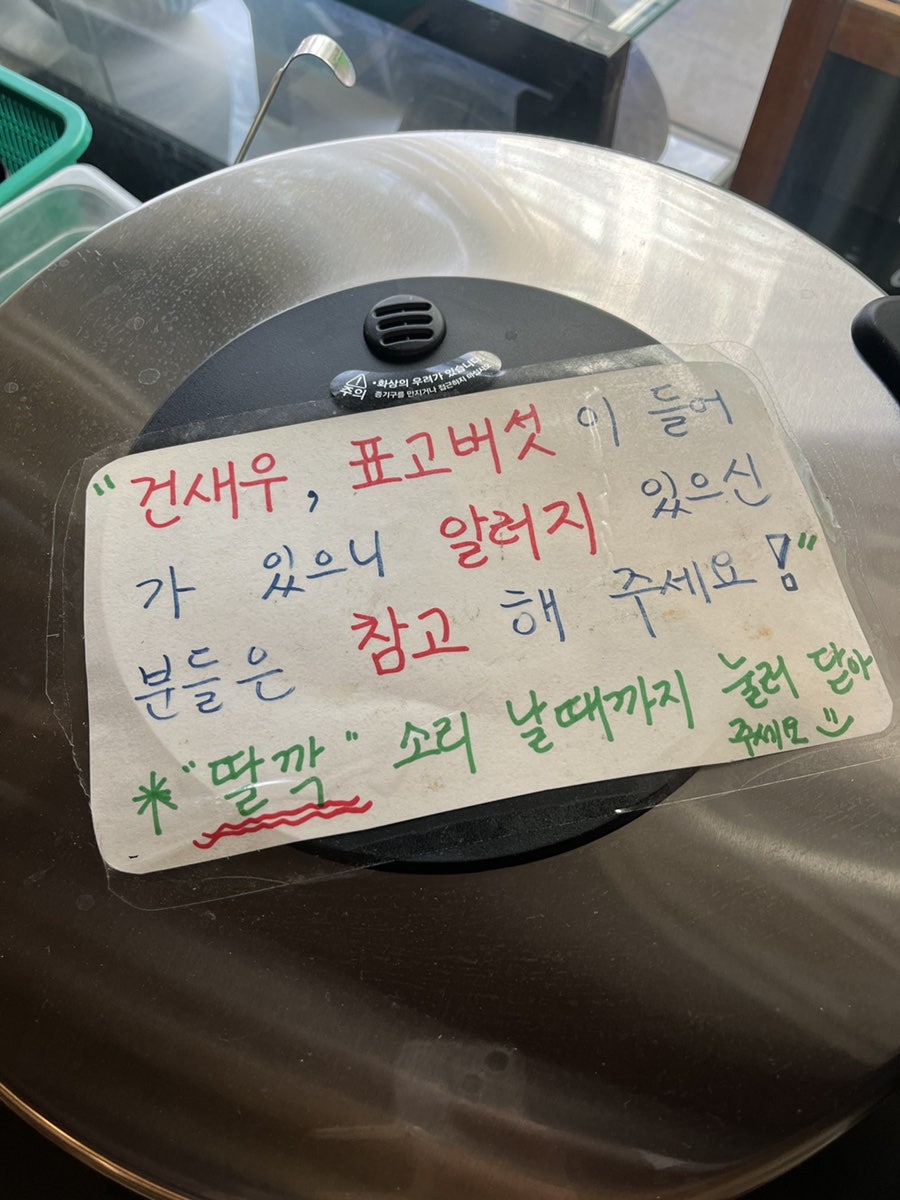 주의
·화상의 우려가 있습니다.
증기구를 만지거나 접근하지 마십시오
"건새우, 표고버섯이 들어
가 있으니 알러지 있으신
분들은 참고 해 주세요!"
* "딸깍" 소리 날때까지 눌러 닫아
주세요